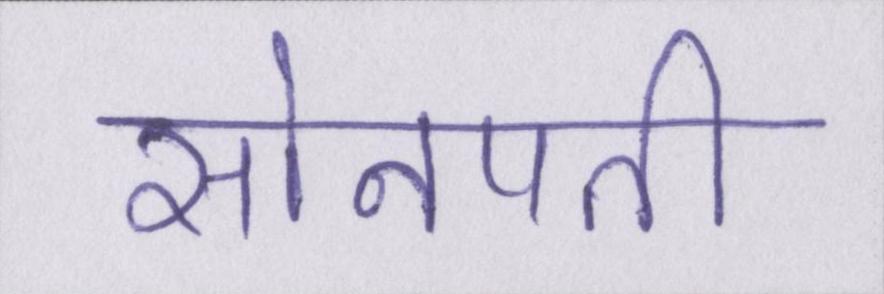 सोनपती